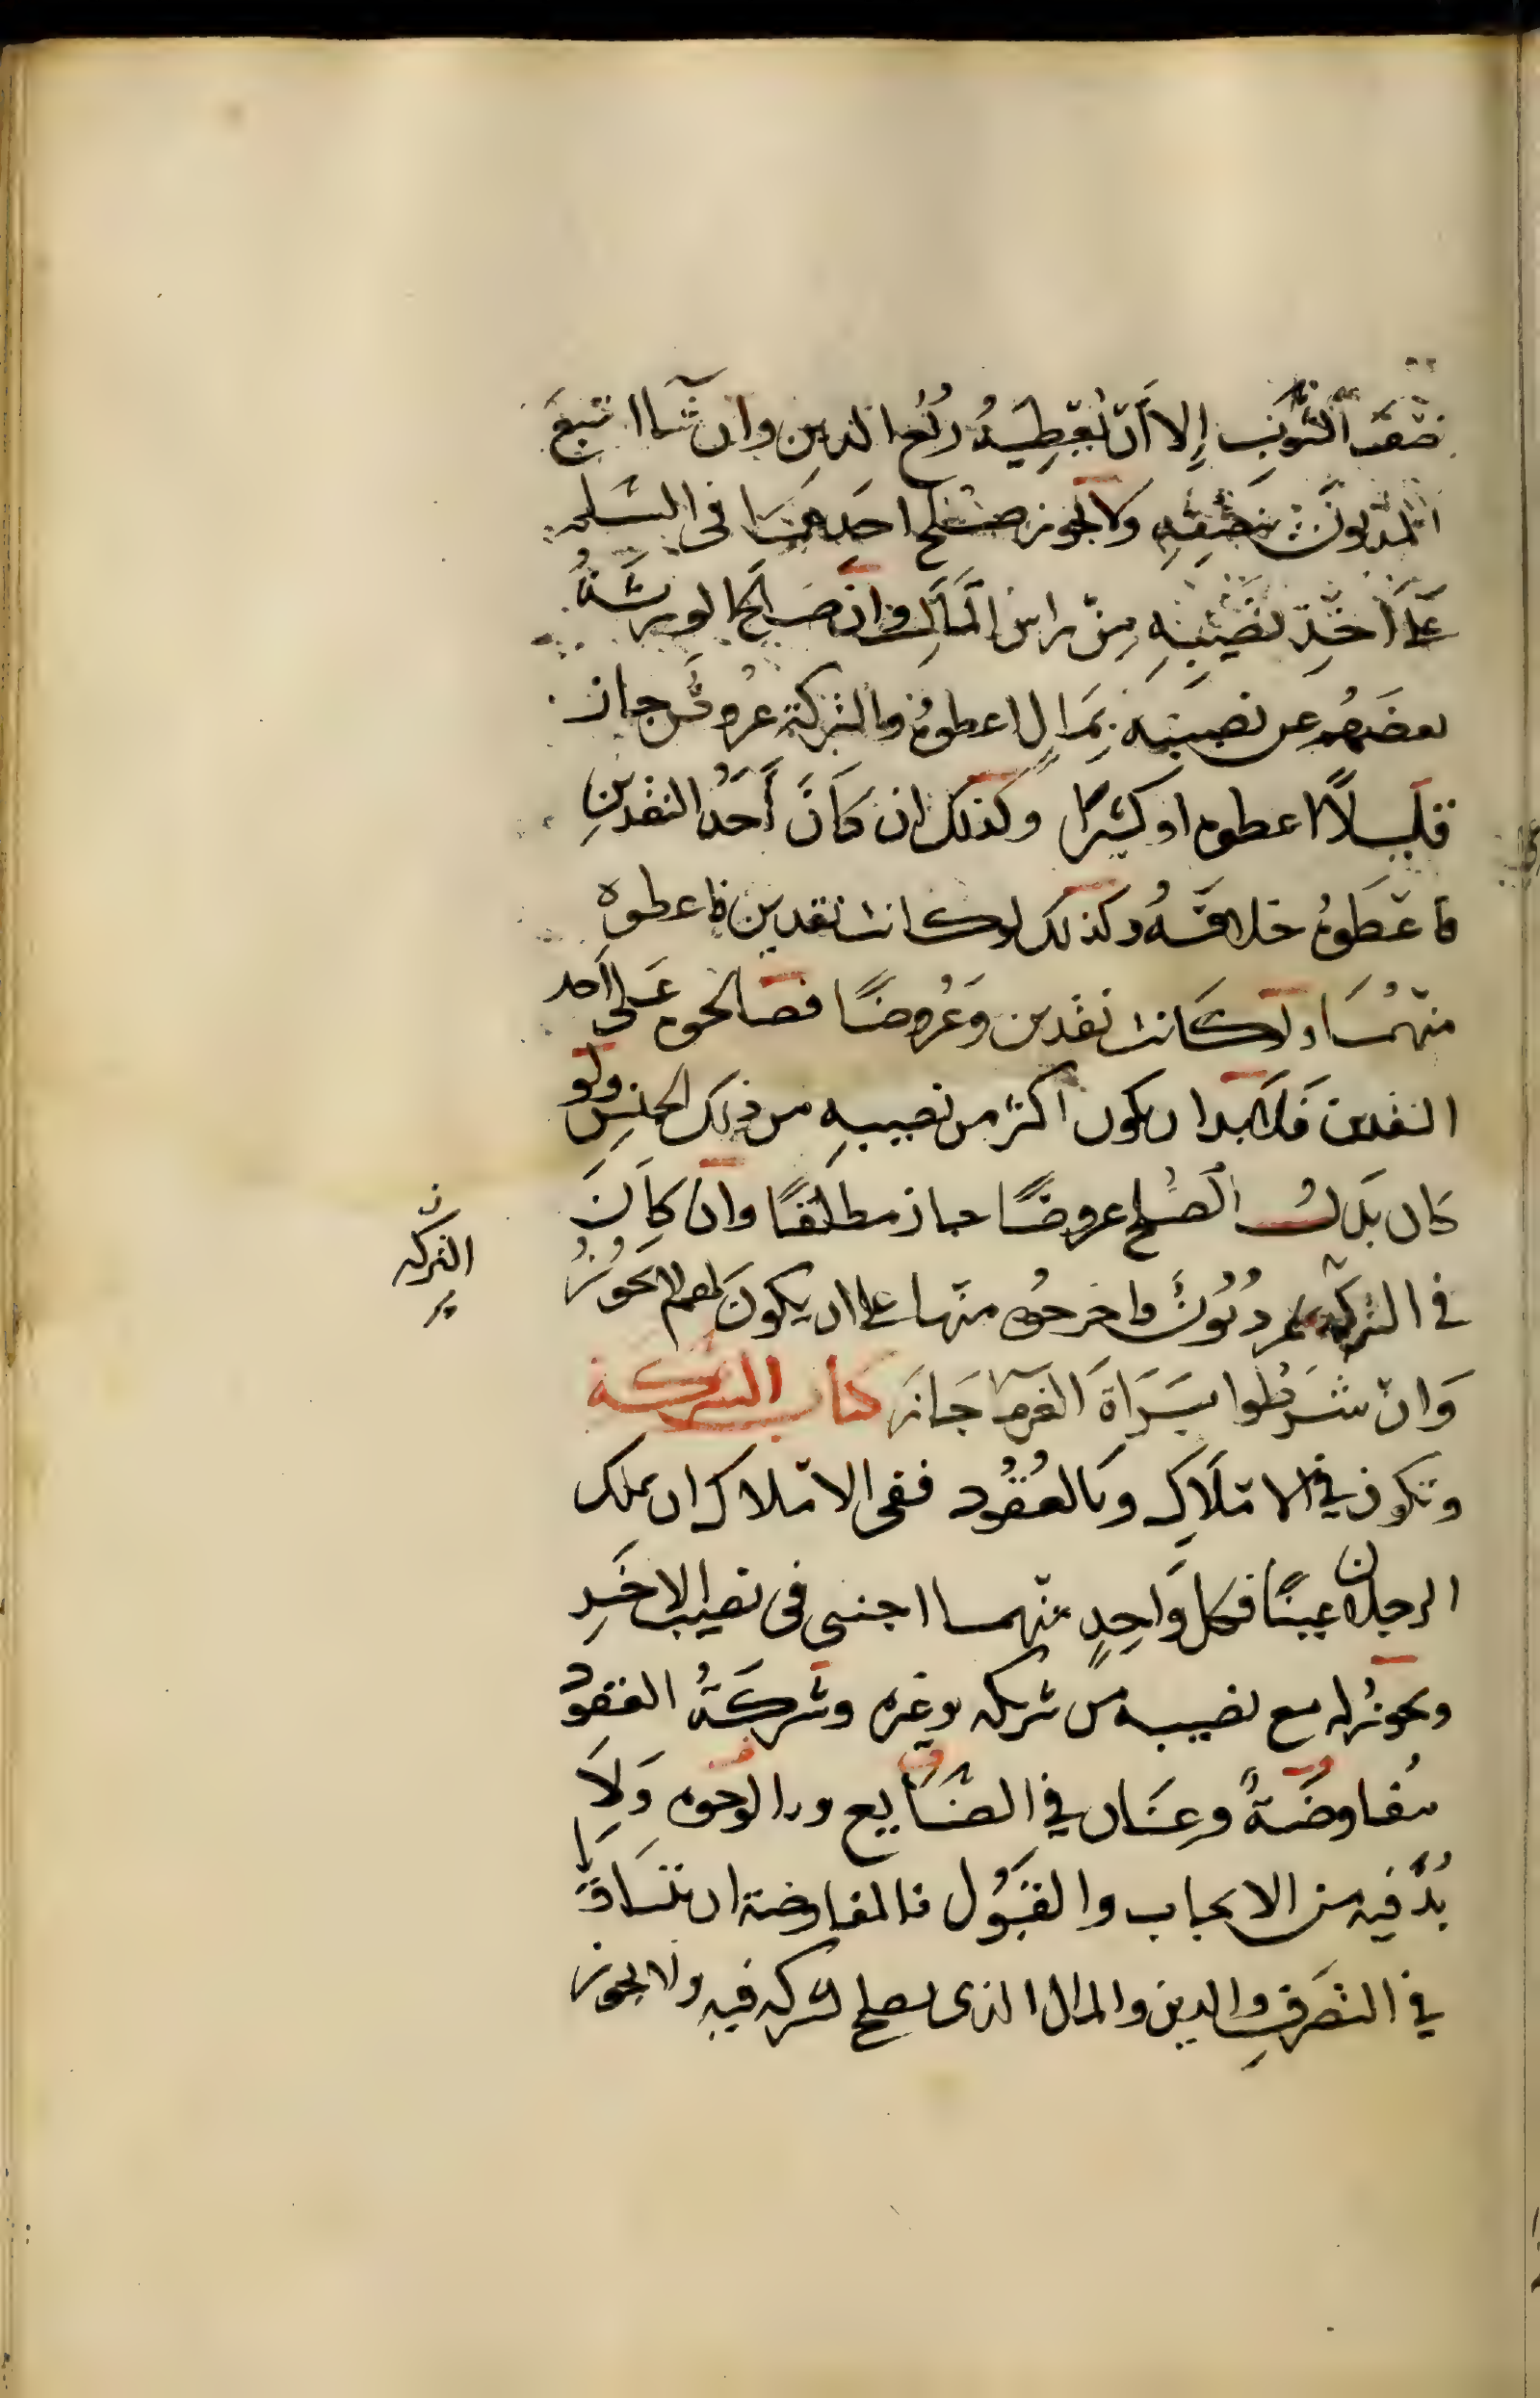 نصف الثوب إلا أن يعطيه ربع الدين وان شاا اتبع
المديون بنصفه ولا يجوز صلح احدهما في السلم
على أخذ نصيبه من راس المال وان صالح الورثة
بعضهم عن نصيبه بمال اعطوه والتركة عروض جاز
قليلاً اعطوه او كثيرا وكذلك ان كان أحد النقدين
فاعطوه خلافه وكذلك لو كانت نقدين فاعطوه
منهما ولو كانت نقدين وعروضًا فصالحوه على احد
النقدين فلا بد ان يكون اكثر من نصيبه من ذلك الجنس ولو
كان بدل الصلح عروضًا جاز مطلقًا وان كان
في التركة ديون فاخرجوه منها على ان يكون لهم لا يجوز
التركه
وان شرطوا براة الغرما جاز كتاب الشركة
وتكون في الاملاك وبالعقود ففي الاملاك ان يملك
الرجلان عينًا فكل واحد منهما اجنبي في نصيب الاخر
ويجوز له بيع نصيبه من شريكه وغيره وشركة العقود
مفاوضة وعنان في الصنايع و الوجوه ولا
بد فيه من الايجاب والقبول فالمفاوضة ان يتساويا
في التصرف والدين والمال الذي يصلح الشركه فيه ولا يجوز